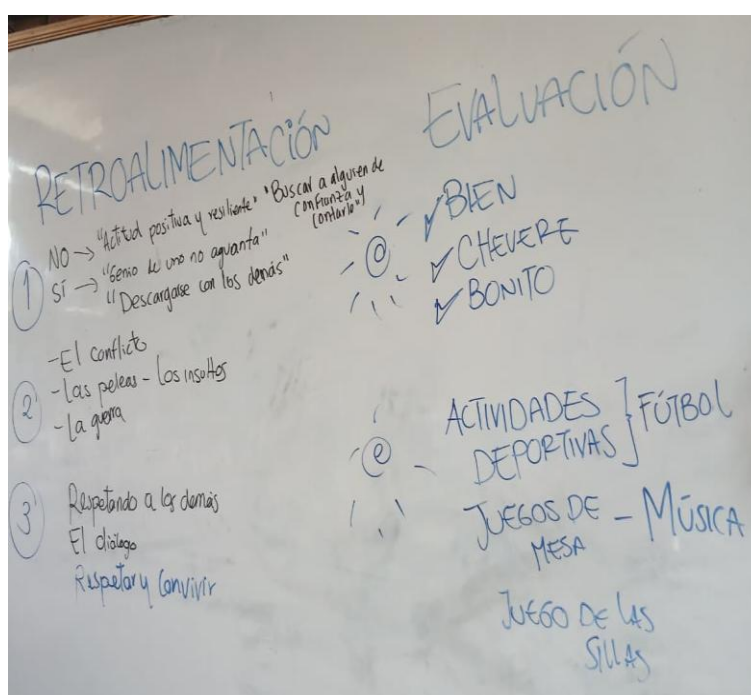 RETROALIMENTACIÓN
1
NO → "Actitud positiva y resiliente" "Buscar a alguien de
confianza y
contarle"
SÍ → "Genio de uno no aguanta"
"Descargarse con los demás"
2
- El conflicto
- Las peleas - Los insultos
- La guerra
3
Respetando a los demás
El diálogo
Respetar y Convivir
EVALUACIÓN
✓ BIEN
✓ CHEVERE
✓ BONITO
ACTIVIDADES } FÚTBOL
DEPORTIVAS
JUEGOS DE - MÚSICA
MESA
JUEGO DE LAS
SILLAS